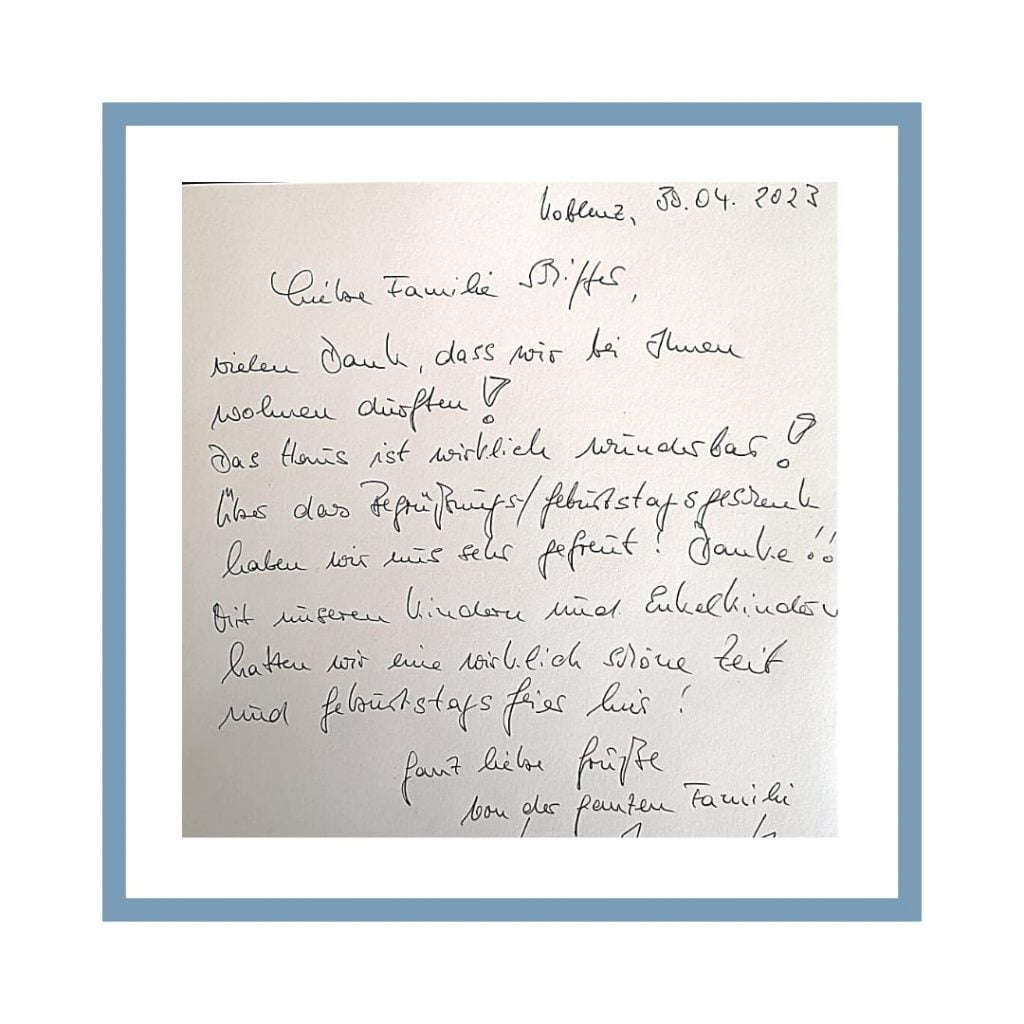 Koblenz, 30.04.2023
Liebe Familie
vielen Dank, dass wir bei Ihnen
wohnen durften!
Das Haus ist wirklich wunderbar!
Über das Begrüßungs/Geburtstagsgeschenk
haben wir uns sehr gefreut! Danke!!
Mit unseren Kindern und Enkelkindern
hatten wir eine wirklich schöne Zeit
und Geburtstagsfeier hier!
Ganz liebe Grüße
von der ganzen Familie